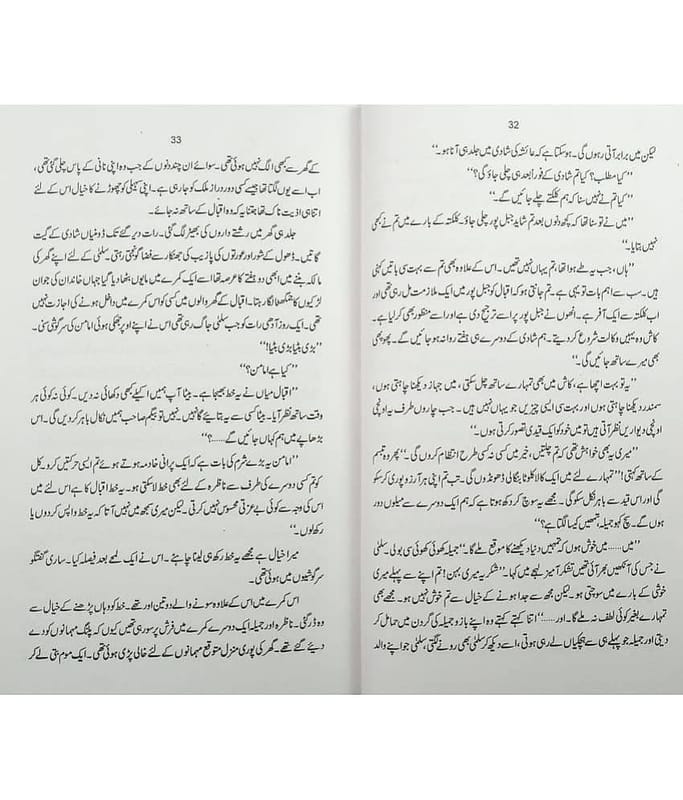 32
لیکن میں برابر آتی رہوں گی۔ ہو سکتا ہے کہ عائشہ کی شادی میں جلد ہی آنا ہو۔‘‘
’’کیا مطلب؟ کیا تم شادی کے فوراً بعد ہی چلی جاؤ گی؟‘‘
’’کیا تم نے نہیں سنا کہ ہم کلکتے چلے جائیں گے۔‘‘
’’میں نے تو سنا تھا کہ کچھ دنوں بعد تم شاید جبل پور چلی جاؤ۔ کلکتہ کے بارے میں تم نے کبھی
نہیں بتایا۔‘‘
’’ہاں، جب یہ طے ہوا تھا، تم یہاں نہیں تھیں۔ اس کے علاوہ بھی تم سے بہت سی باتیں کہنی
ہیں۔ سب سے اہم بات تو یہی ہے۔ تم جانتی ہو کہ اقبال کو جبل پور میں ایک ملازمت مل رہی تھی
اب کلکتہ سے ایک آفر ہے۔ انھوں نے جبل پور پر اسے ترجیح دی ہے اور اسے منظور بھی کر لیا ہے۔
کاش وہ یہیں وکالت شروع کر دیتے۔ ہم شادی کے دوسرے ہی ہفتے روانہ ہو جائیں گے۔ پھوپھی
بھی میرے ساتھ جائیں گی۔‘‘
’’یہ تو بہت اچھا ہے، کاش میں بھی تمہارے ساتھ چل سکتی، میں جہاز دیکھنا چاہتی ہوں،
سمندر دیکھنا چاہتی ہوں اور بہت سی ایسی چیزیں جو یہاں نہیں ہیں۔ جب چاروں طرف یہ اونچی
اونچی دیواریں نظر آتی ہیں تو میں خود کو ایک قیدی تصور کرتی ہوں۔‘‘
’’میری یہ بھی خواہش تھی کہ تم چلتیں، خیر میں کسی نہ کسی طرح انتظام کروں گی۔‘‘ پھر وہ تبسم
کے ساتھ کہتی! ’’تمہارے لئے میں ایک کالا کلوٹا بنگالی ڈھونڈوں گی۔ تب تم اپنی ہر آرزو پوری کر سکو
گی اور اس قید سے باہر نکل سکو گی۔ مجھے یہ سوچ کر دکھ ہوتا ہے کہ ہم ایک دوسرے سے میلوں دور
ہوں گے۔ سچ کہو جمیلہ تمھیں کیسا لگتا ہے؟‘‘
’’میں……میں خوش ہوں کہ تمہیں دنیا دیکھنے کا موقع ملے گا۔‘‘ جمیلہ کھوئی کھوئی سی بولی۔ سلمٰی
نے جس کی آنکھیں بھر آئی تھیں تشکر آمیز لہجے میں کہا۔ ’’شکریہ میری بہن! تم اپنے سے پہلے میری
خوشی کے بارے میں سوچتی ہو۔ لیکن مجھ سے جدا ہونے کے خیال سے تم خوش نہیں ہو۔ مجھے بھی
تمہارے بغیر کوئی لطف نہ ملے گا۔ اور……‘‘ اتنا کہتے کہتے وہ اپنے بازو جمیلہ کی گردن میں حمائل کر
دیتی اور جمیلہ جو پہلے ہی سے ہچکیاں لے رہی ہوتی، اسے دیکھ کر سلمٰی بھی رونے لگتی، جو اپنے والد
33
کے گھر سے کبھی الگ نہیں ہوئی تھی۔ سوائے ان چند دنوں کے جب وہ اپنی نانی کے پاس چلی گئی تھی،
اب اسے یوں لگتا تھا جیسے کسی دور دراز ملک کو جا رہی ہے۔ اپنی سہیلی کو چھوڑنے کا خیال اس کے لئے
اتنا ہی اذیت ناک تھا جتنا یہ کہ وہ اقبال کے ساتھ نہ جائے۔
جلد ہی گھر میں رشتے داروں کی بھیڑ لگ گئی۔ رات دیر گئے تک ڈومنیاں شادی کے گیت
گاتیں۔ ڈھول کے شور اور عورتوں کی پازیب کی جھنکار سے فضا گونجتی رہتی۔ سلمٰی کے لئے اپنے گھر کی
مالکہ بننے میں ابھی دو ہفتے کا عرصہ تھا اسے ایک کمرے میں مایوں بٹھا دیا گیا جہاں خاندان کی جوان
لڑکیوں کا جمگھٹا لگا رہتا۔ اقبال کے گھر والوں میں کسی کو اس کمرے میں داخل ہونے کی اجازت نہیں
تھی۔ ایک روز آدھی رات کو جب سلمٰی جاگ رہی تھی اس نے اپنے اوپر جھکی ہوئی امامن کی سرگوشی سنی۔
’’بڑی بٹیا بڑی بٹیا!‘‘
’’کیا ہے امامن؟‘‘
’’اقبال میاں نے یہ خط بھیجا ہے۔ بیٹا آپ ہمیں اکیلے بھی دکھائی نہ دیں۔ کوئی نہ کوئی ہر
وقت ساتھ نظر آیا۔ بیٹا کسی سے بتایئے گا نہیں۔ نہیں تو بیگم صاحب ہمیں نکال باہر کر دیں گی۔ اس
بڑھاپے میں ہم کہاں جائیں گے……؟‘‘
’’امامن یہ بڑے شرم کی بات ہے کہ ایک پرانی خادمہ ہوتے ہوئے تم ایسی حرکتیں کرو۔ کل
کو تم کسی دوسرے کی طرف سے ناظرہ کے لئے بھی خط لا سکتی ہو۔ یہ خط اقبال کا ہے اس لئے میں
اس کی وجہ سے کوئی بے عزتی محسوس نہیں کرتی۔ لیکن میری سمجھ میں نہیں آتا کہ یہ خط واپس کردوں یا
رکھ لوں۔‘‘
میرا خیال ہے مجھے یہ خط رکھ ہی لینا چاہئے۔ اس نے ایک لمحے بعد فیصلہ کیا۔ ساری گفتگو
سرگوشیوں میں ہوئی تھی۔
اس کمرے میں اس کے علاوہ سونے والے دو تین اور تھے۔ خط کو وہاں پڑھنے کے خیال سے
وہ ڈر گئی۔ ناظرہ اور جمیلہ ایک دوسرے کمرے میں فرش پر سو رہی تھیں کیوں کہ پلنگ مہمانوں کو دے
دیئے گئے تھے۔ گھر کی پوری منزل متوقع مہمانوں کے لئے خالی پڑی ہوئی تھی۔ ایک موم بتی لے کر